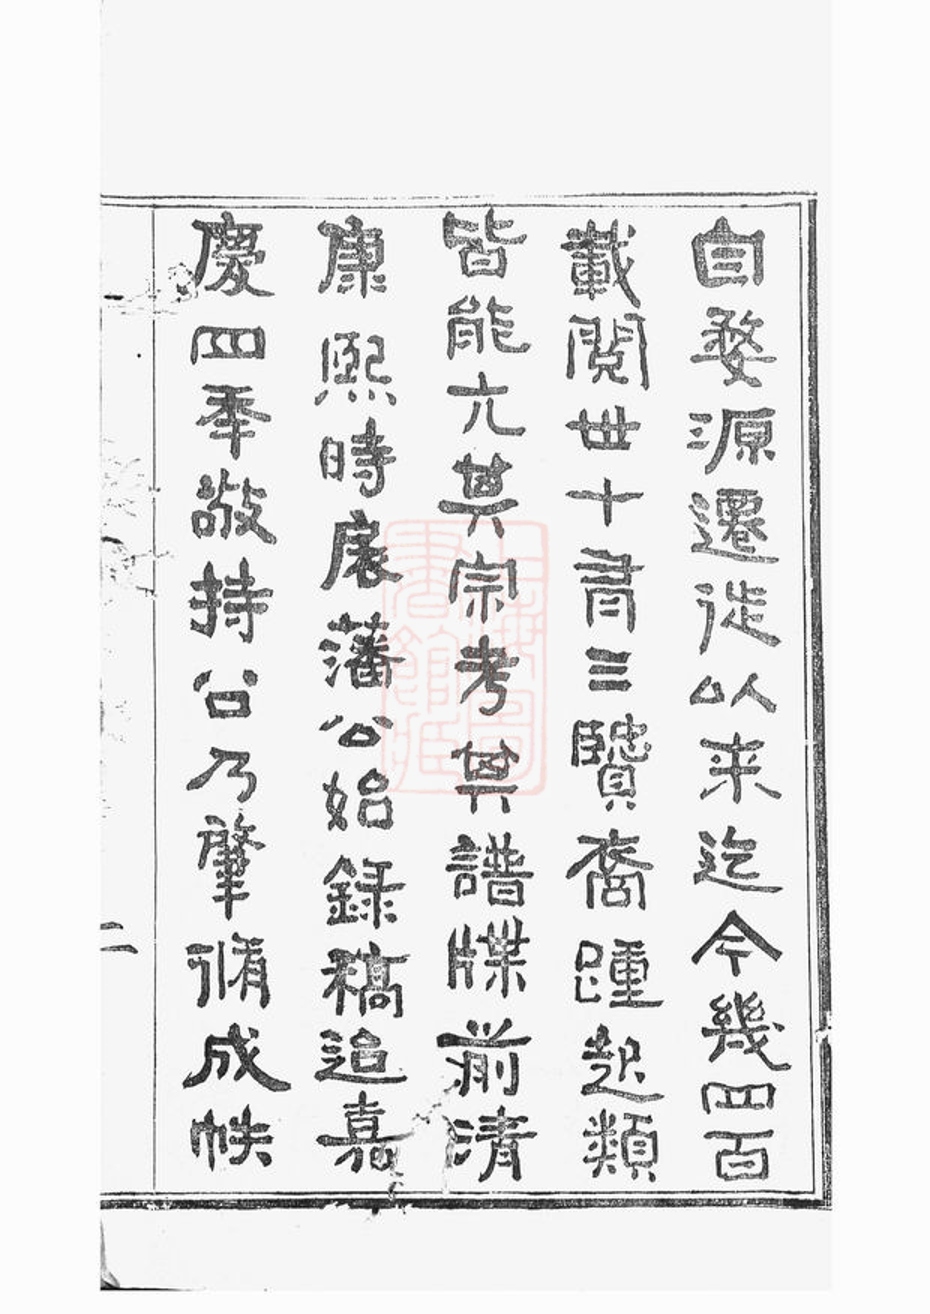 自婺源遷徙以來迄今幾四百
載閱世十有三賢裔踵起類
皆能亢其宗考其譜牒前清
康熙時展藩公始録稿迨嘉
慶四年敬持公乃肇脩成帙
二